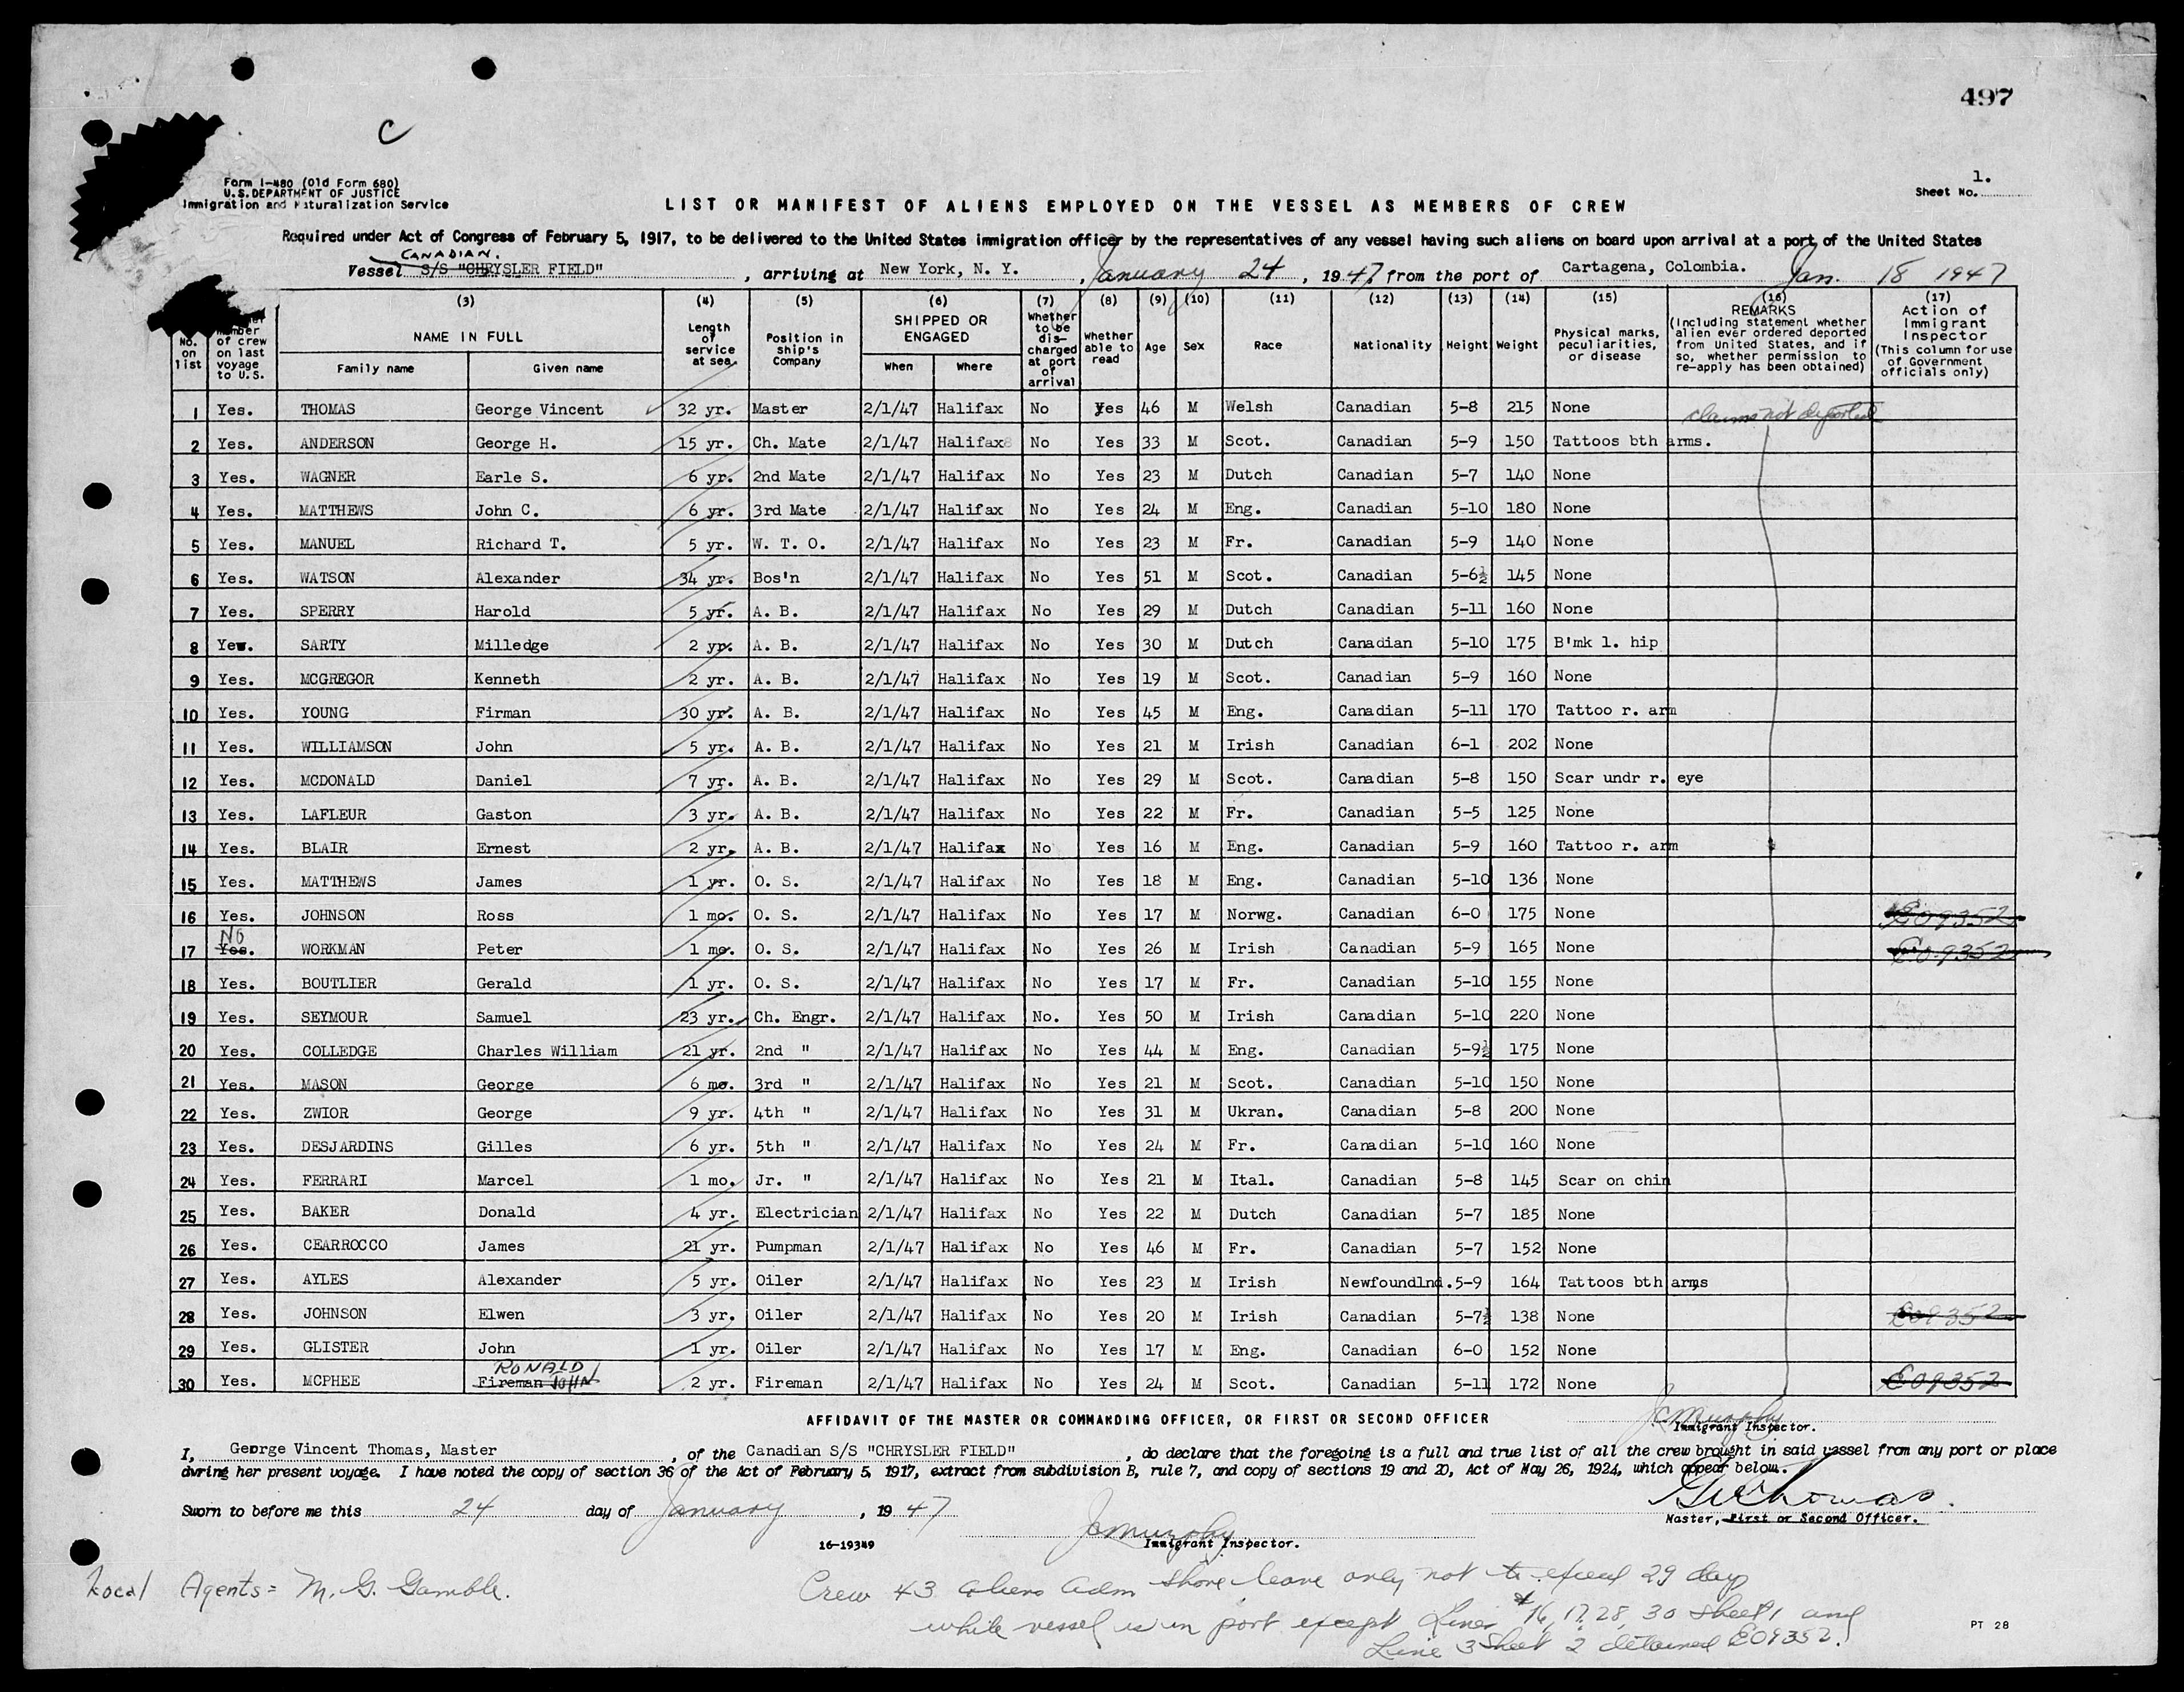 497
C
Form I-480 (Old Form 680)
U.S. DEPARTMENT OF JUSTICE
Immigration and Naturalization Service
Sheet No. 1.
LIST OR MANIFEST OF ALIENS EMPLOYED ON THE VESSEL AS MEMBERS OF CREW
Required under Act of Congress of February 5, 1917, to be delivered to the United States immigration officer by the representatives of any vessel having such aliens on board upon arrival at a port of the United States
CANADIAN.
Vessel S/S "CHRYSLER FIELD" , arriving at New York, N. Y. , January 24 , 1947, from the port of Cartagena, Colombia. Jan. 18 1947
No. on list | member of crew on last voyage to U.S. | (3) NAME IN FULL Family name | Given name | (4) Length of service at sea | (5) Position in ship's Company | (6) SHIPPED OR ENGAGED When | Where | (7) Whether to be discharged at port of arrival | (8) Whether able to read | (9) Age | (10) Sex | (11) Race | (12) Nationality | (13) Height | (14) Weight | (15) Physical marks, peculiarities, or disease | (16) REMARKS (Including statement whether alien ever ordered deported from United States, and if so, whether permission to re-apply has been obtained) | (17) Action of Immigrant Inspector (This column for use of Government officials only)
1 Yes. THOMAS George Vincent 32 yr. Master 2/1/47 Halifax No Yes 46 M Welsh Canadian 5-8 215 None claims not deported
2 Yes. ANDERSON George H. 15 yr. Ch. Mate 2/1/47 Halifax No Yes 33 M Scot. Canadian 5-9 150 Tattoos bth arms.
3 Yes. WAGNER Earle S. 6 yr. 2nd Mate 2/1/47 Halifax No Yes 23 M Dutch Canadian 5-7 140 None
4 Yes. MATTHEWS John C. 6 yr. 3rd Mate 2/1/47 Halifax No Yes 24 M Eng. Canadian 5-10 180 None
5 Yes. MANUEL Richard T. 5 yr. W. T. O. 2/1/47 Halifax No Yes 23 M Fr. Canadian 5-9 140 None
6 Yes. WATSON Alexander 34 yr. Bos'n 2/1/47 Halifax No Yes 51 M Scot. Canadian 5-6½ 145 None
7 Yes. SPERRY Harold 5 yr. A. B. 2/1/47 Halifax No Yes 29 M Dutch Canadian 5-11 160 None
8 Yew. SARTY Milledge 2 yr. A. B. 2/1/47 Halifax No Yes 30 M Dutch Canadian 5-10 175 B'mk l. hip
9 Yes. MCGREGOR Kenneth 2 yr. A. B. 2/1/47 Halifax No Yes 19 M Scot. Canadian 5-9 160 None
10 Yes. YOUNG Firman 30 yr. A. B. 2/1/47 Halifax No Yes 45 M Eng. Canadian 5-11 170 Tattoo r. arm
11 Yes. WILLIAMSON John 5 yr. A. B. 2/1/47 Halifax No Yes 21 M Irish Canadian 6-1 202 None
12 Yes. MCDONALD Daniel 7 yr. A. B. 2/1/47 Halifax No Yes 29 M Scot. Canadian 5-8 150 Scar undr r. eye
13 Yes. LAFLEUR Gaston 3 yr. A. B. 2/1/47 Halifax No Yes 22 M Fr. Canadian 5-5 125 None
14 Yes. BLAIR Ernest 2 yr. A. B. 2/1/47 Halifax No Yes 16 M Eng. Canadian 5-9 160 Tattoo r. arm
15 Yes. MATTHEWS James 1 yr. O. S. 2/1/47 Halifax No Yes 18 M Eng. Canadian 5-10 136 None
16 Yes. JOHNSON Ross 1 mo. O. S. 2/1/47 Halifax No Yes 17 M Norwg. Canadian 6-0 175 None E09352
17 Yes. NO WORKMAN Peter 1 mo. O. S. 2/1/47 Halifax No Yes 26 M Irish Canadian 5-9 165 None E09352
18 Yes. BOUTLIER Gerald 1 yr. O. S. 2/1/47 Halifax No Yes 17 M Fr. Canadian 5-10 155 None
19 Yes. SEYMOUR Samuel 23 yr. Ch. Engr. 2/1/47 Halifax No. Yes 50 M Irish Canadian 5-10 220 None
20 Yes. COLLEDGE Charles William 21 yr. 2nd " 2/1/47 Halifax No Yes 44 M Eng. Canadian 5-9½ 175 None
21 Yes. MASON George 6 mo. 3rd " 2/1/47 Halifax No Yes 21 M Scot. Canadian 5-10 150 None
22 Yes. ZWIOR George 9 yr. 4th " 2/1/47 Halifax No Yes 31 M Ukran. Canadian 5-8 200 None
23 Yes. DESJARDINS Gilles 6 yr. 5th " 2/1/47 Halifax No Yes 24 M Fr. Canadian 5-10 160 None
24 Yes. FERRARI Marcel 1 mo. Jr. " 2/1/47 Halifax No Yes 21 M Ital. Canadian 5-8 145 Scar on chin
25 Yes. BAKER Donald 4 yr. Electrician 2/1/47 Halifax No Yes 22 M Dutch Canadian 5-7 185 None
26 Yes. CEARROCCO James 21 yr. Pumpman 2/1/47 Halifax No Yes 46 M Fr. Canadian 5-7 152 None
27 Yes. AYLES Alexander 5 yr. Oiler 2/1/47 Halifax No Yes 23 M Irish Newfoundlnd. 5-9 164 Tattoos bth arms
28 Yes. JOHNSON Elwen 3 yr. Oiler 2/1/47 Halifax No Yes 20 M Irish Canadian 5-7½ 138 None E09352
29 Yes. GLISTER John 1 yr. Oiler 2/1/47 Halifax No Yes 17 M Eng. Canadian 6-0 152 None
30 Yes. MCPHEE Fireman JOHN RONALD 2 yr. Fireman 2/1/47 Halifax No Yes 24 M Scot. Canadian 5-11 172 None E09352
AFFIDAVIT OF THE MASTER OR COMMANDING OFFICER, OR FIRST OR SECOND OFFICER
JC Murphy
Immigrant Inspector.
I, George Vincent Thomas, Master , of the Canadian S/S "CHRYSLER FIELD" , do declare that the foregoing is a full and true list of all the crew brought in said vessel from any port or place
during her present voyage. I have noted the copy of section 36 of the Act of February 5, 1917, extract from subdivision B, rule 7, and copy of sections 19 and 20, Act of May 26, 1924, which appear below.
GVThomas.
Master, First or Second Officer.
Sworn to before me this 24 day of January , 1947
JC Murphy
Immigrant Inspector.
16-19349
Local Agents = M. G. Gamble.
Crew 43 aliens adm shore leave only not to exceed 29 days
while vessel is in port except Lines * 16, 17, 28, 30 sheet 1 and
Line 3 Sheet 2 detained E09352.
PT 28